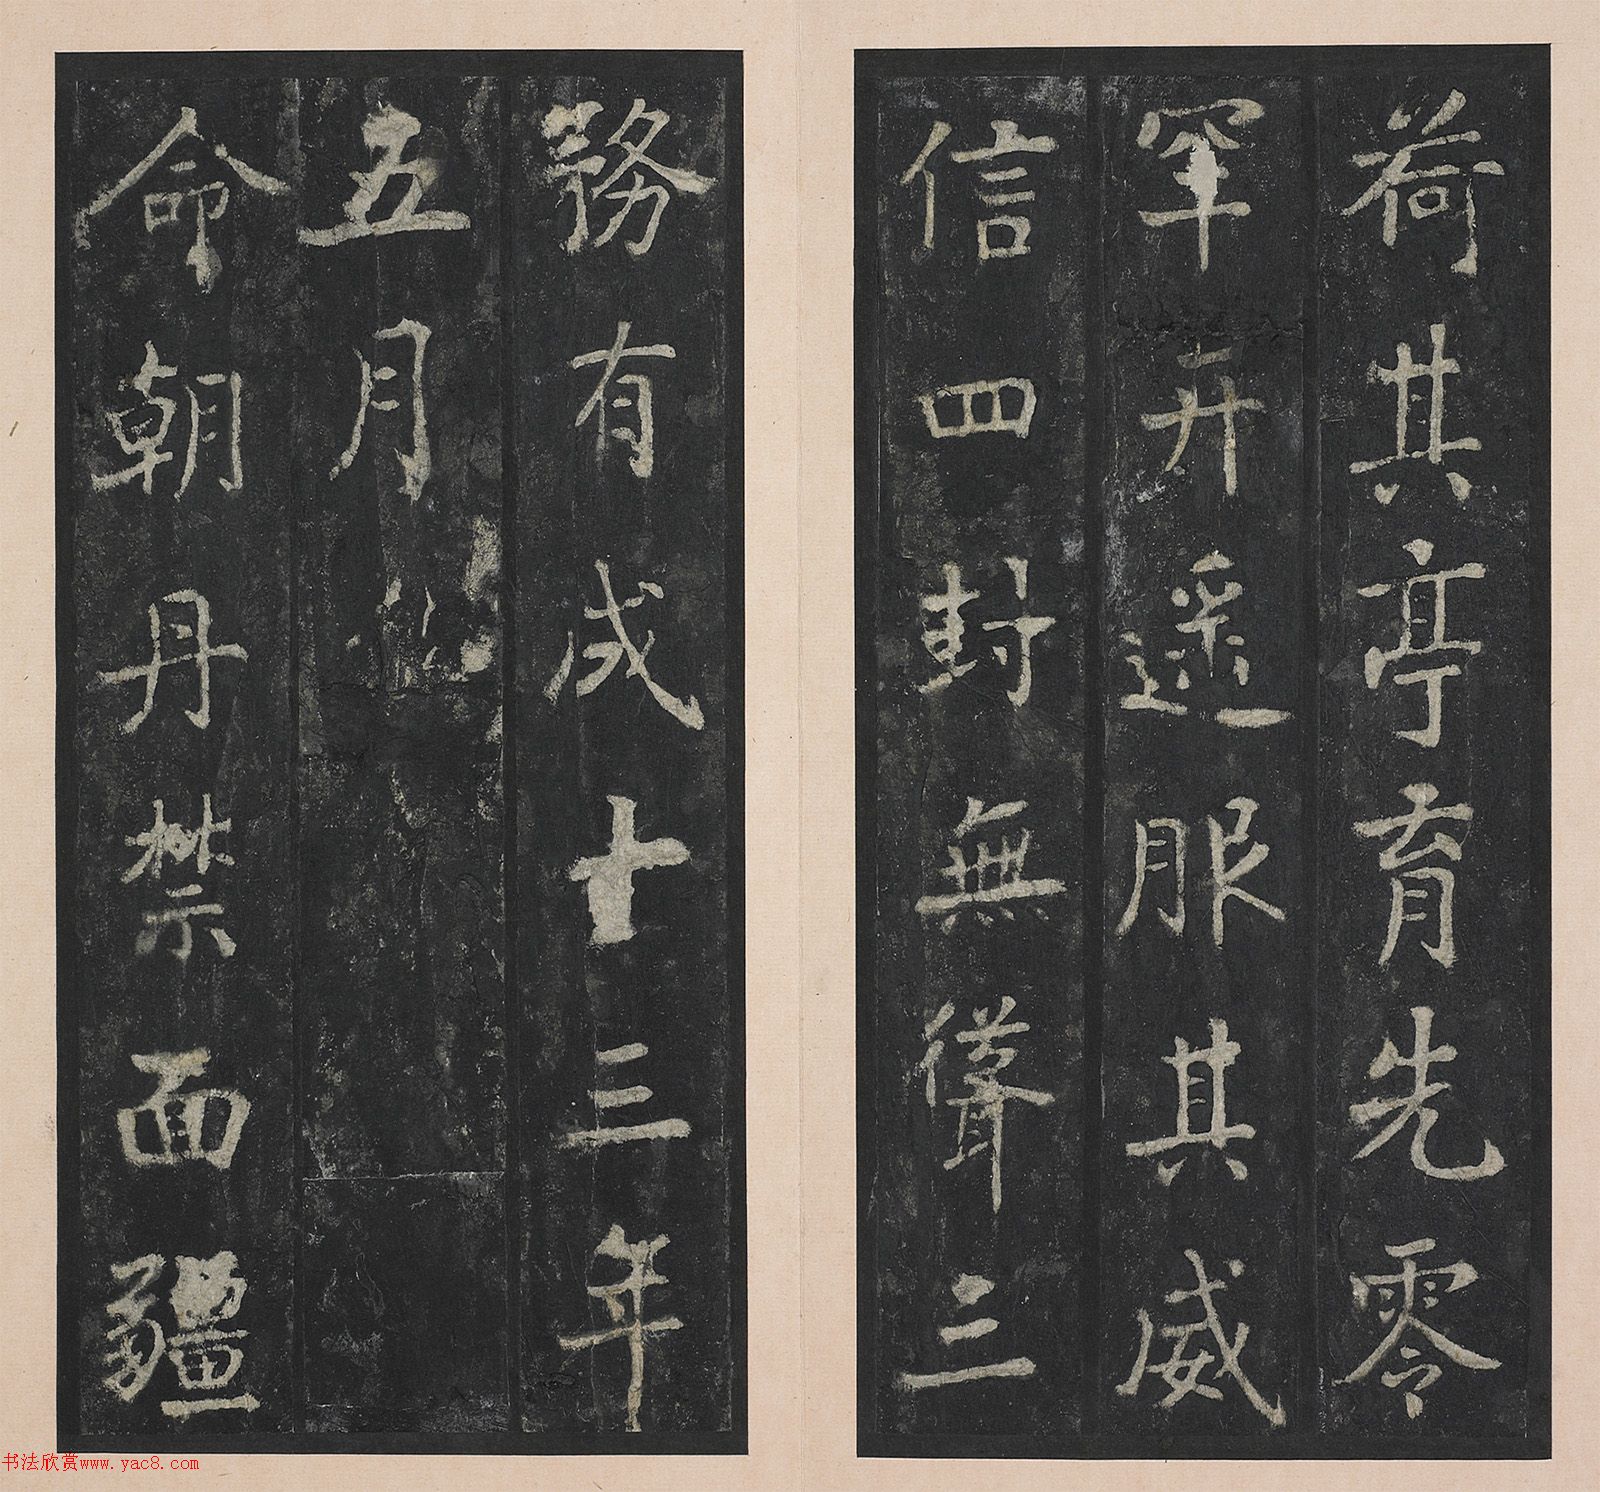 荷其亭育先零
罕幵遥服其威
信四封無聳三
務有成十三年
五月
命朝丹禁面疆
书法欣赏www.yac8.com